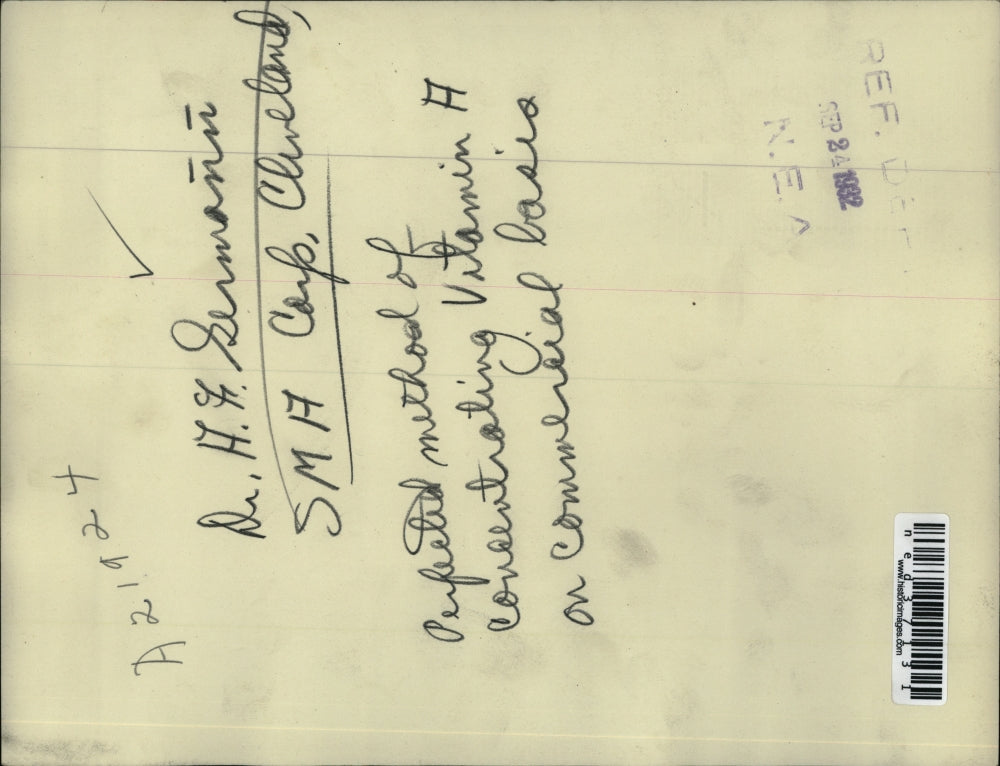 A21924
Dr. H. F. Germann
SMA Corp, Cleveland,
Perfected method of
concentrating Vitamin A
on commercial basis
REF. DEPT
SEP 24 1932
N.E.A
ned37131
www.historicimages.com